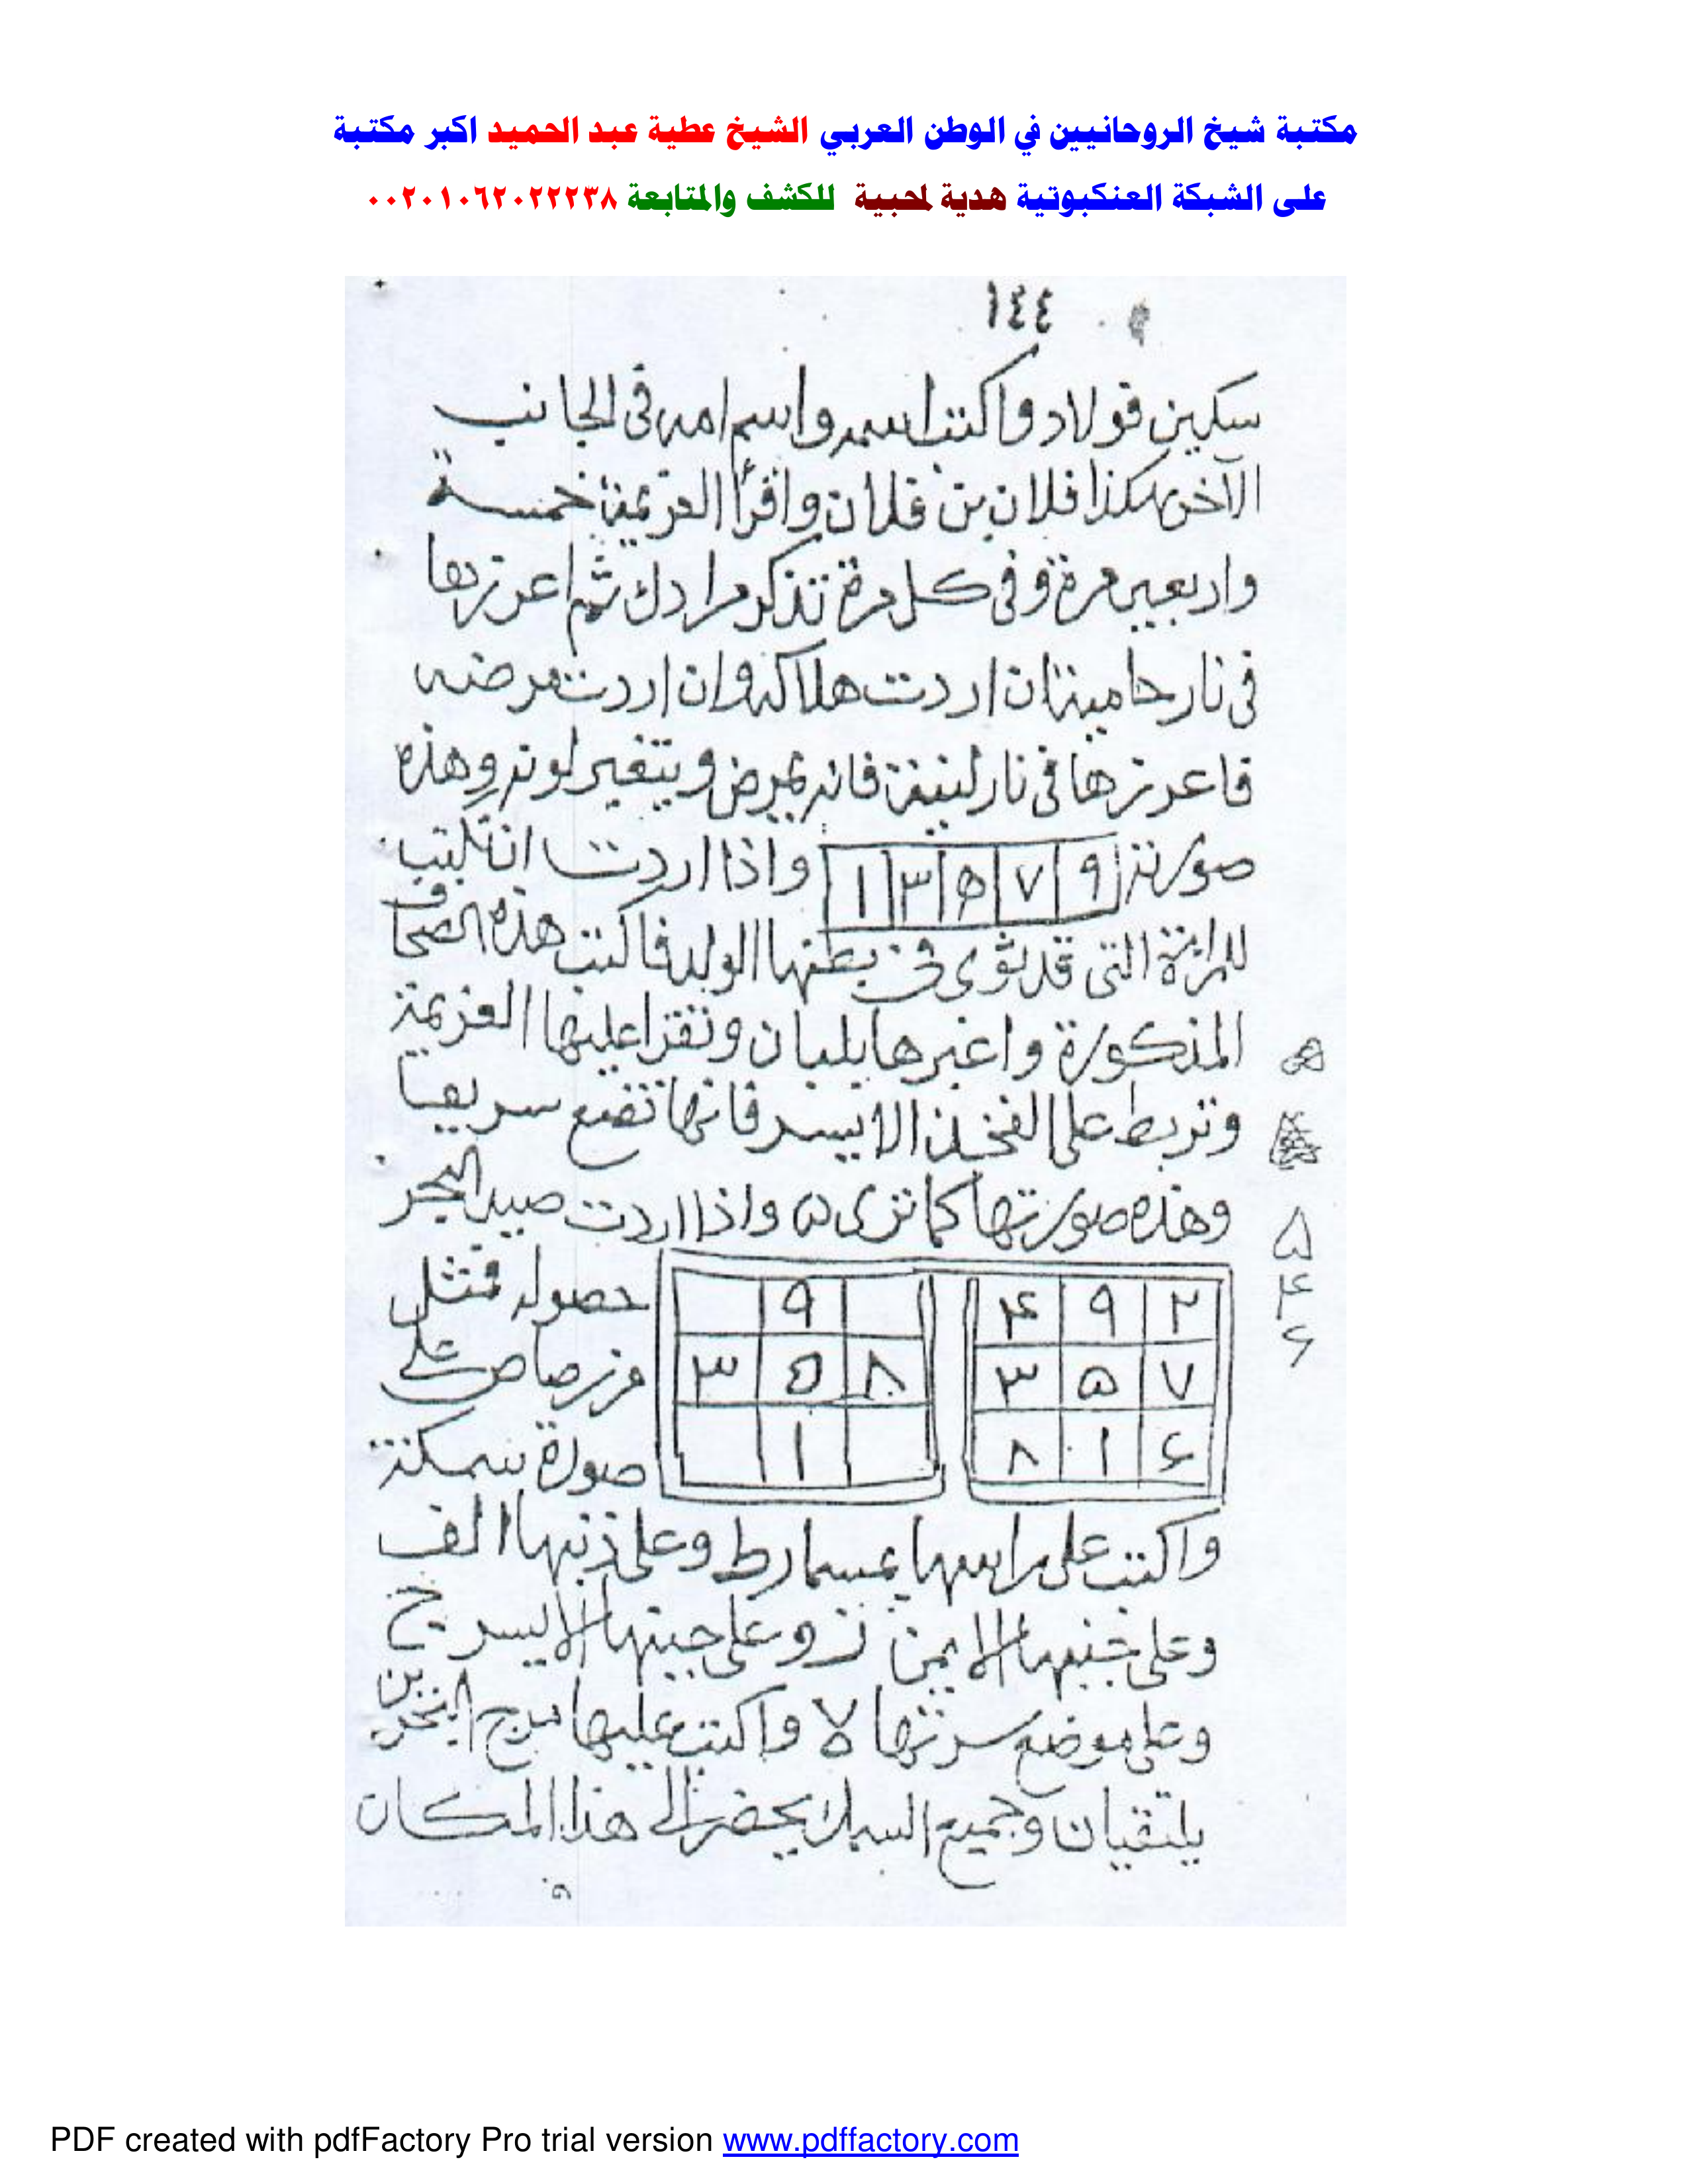 مكتبة شيخ الروحانيين في الوطن العربي الشيخ عطية عبد الحميد اكبر مكتبة
على الشبكة العنكبوتية هدية لمحبية للكشف والمتابعة ٠٠٢٠١٠٦٢٠٢٢٢٣٨
١٤٤
سكين فولاد واكتب اسمه واسم امه فى الجانب
الآخر هكذا فلان بن فلان واقرأ العزيمة خمسة
واربعين مرة وفى كل مرة تذكر مرادك ثم اعرزها
فى نار حامية ان اردت هلاكه وان اردت مرضه
فاعرزها فى نار لينة فانه يمرض ويتغير لونه وهذه
صورته ٩ ٧ ۵ ٣ ١ واذا اردت ان تكتب
للمرأة التى قد ثوى فى بطنها الولد فاكتب هذه الصحاف
المذكورة و بلبان وتقرأ عليها العزيمة
وتربط على الفخذ الايسر فانها تضع سريعا
وهذه صورتها كما ترى ۵ واذا اردت صيد البحر
۵
۴
۶
٢ ٩ ۴
٧ ۵ ٣
۶ ١ ٨
٩
٨ ۵ ٣
١
حصوله فمثل
من رصاص على
صورة سمكة
واكتب على راسها بمسمار ط وعلى ذنبها الف
وعلى جنبها الايمن ز وعلى جنبها الايسر ج
وعلى موضع سرتها لا واكتب عليها مرج البحرين
يلتقيان وجميع السمك يحضر الى هذا المكان
PDF created with pdfFactory Pro trial version www.pdffactory.com